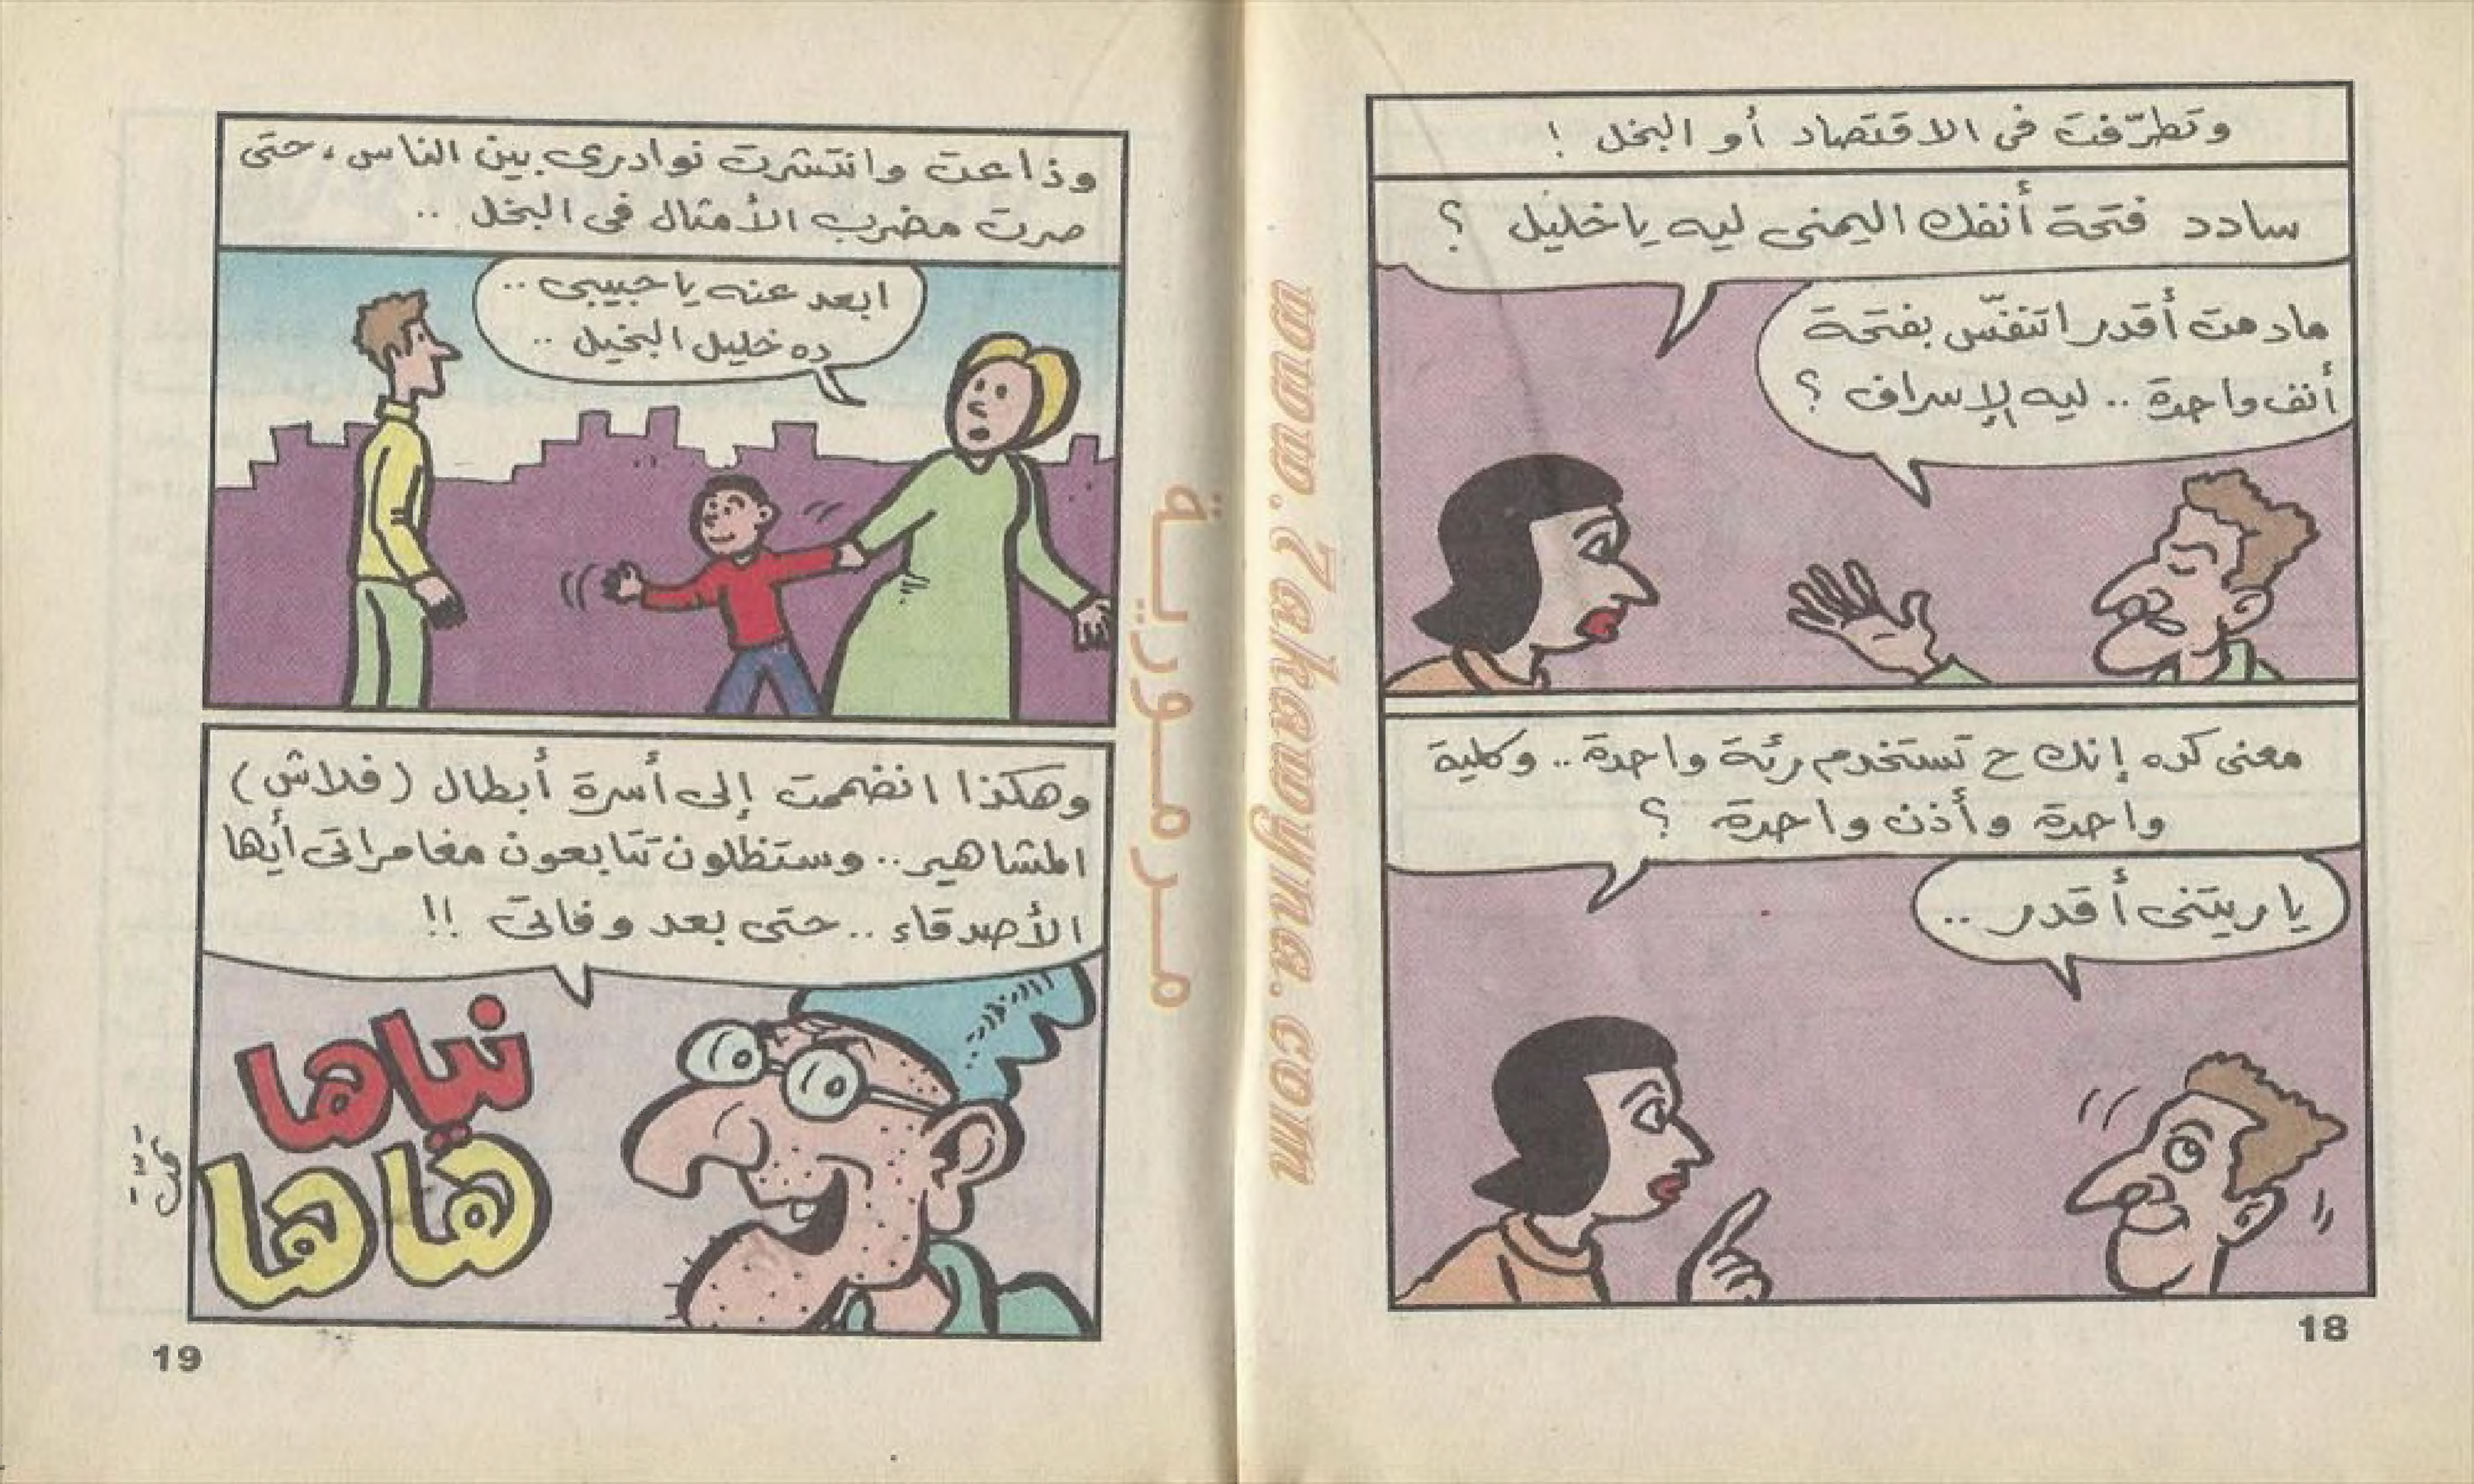 وتطرّفت فى الاقتصاد أو البخل !
سادد فتحة أنفك اليمنى ليه ياخليل ؟
مادمت أقدر اتنفّس بفتحة
أنف واحدة .. ليه الإسراف ؟
معنى كده إنك ح تستخدم رئة واحدة .. وكلية
واحدة وأذن واحدة ؟
ياريتنى أقدر ..
18
www.Zakawyna.com
مرمورية
وذاعت وانتشرت نوادرى بين الناس ، حتى
صرت مضرب الأمثال فى البخل ..
ابعد عنه ياحبيبى ..
ده خليل البخيل ..
وهكذا انضممت إلى أسرة أبطال (فلاش)
المشاهير .. وستظلون تتابعون مغامراتى أيها
الأصدقاء .. حتى بعد وفاتى !!
نياها
هاها
19